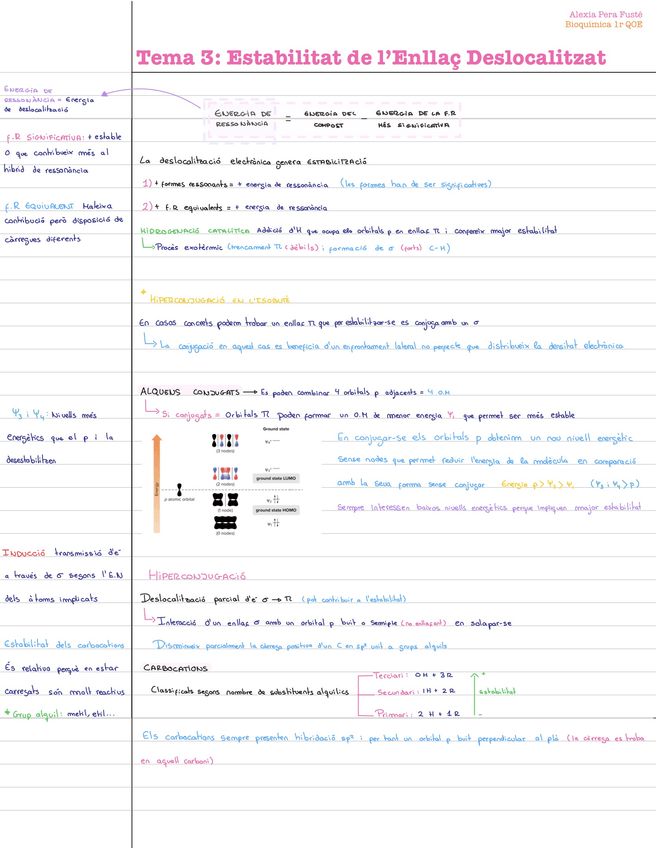 Alexia Pera Fusté
Bioquímica 1r QOE
Tema 3: Estabilitat de l'Enllaç Deslocalitzat
ENERGIA DE
RESSONÀNCIA = Energia
de deslocalització
F.R SIGNIFICATIVA: + estable
o que contribueix més al
híbrid de ressonància
F.R EQUIVALENT Mateixa
contribució però disposició de
càrregues diferents
ENERGIA DE RESSONÀNCIA = ENERGIA DEL COMPOST - ENERGIA DE LA F.R MÉS SIGNIFICATIVA
La deslocalització electrònica genera ESTABILITZACIÓ
1) + formes ressonants = + energia de ressonància (les formes han de ser significatives)
2) + F.R equivalents = + energia de ressonància
HIDROGENACIÓ CATALÍTICA Addició d'H que ocupa els orbitals p en enllaç π i confereix major estabilitat
Procés exotèrmic (trencament π (dèbils) i formació de σ (forts) C-H)
* HIPERCONJUGACIÓ EN L'ISOBUTÈ
En casos concrets podem trobar un enllaç π que per estabilitzar-se es conjuga amb un σ
La conjugació en aquest cas es beneficia d'un enfrontament lateral no perfecte que distribueix la densitat electrònica
ALQUENS CONJUGATS → Es poden combinar 4 orbitals p adjacents = 4 O.M
Si conjugats = Orbitals π poden formar un O.M de menor energia Ψ₁ que permet ser més estable
Ψ₃ i Ψ₄: Nivells més
energètics que el p i la
desestabilitzen
Ground state
Ψ₄*
(3 nodes)
Ψ₃*
(2 nodes)
ground state LUMO
Energy
p atomic orbital
Ψ₂
(1 node)
ground state HOMO
Ψ₁
(0 nodes)
En conjugar-se els orbitals p obtenim un nou nivell energètic
sense nodes que permet reduir l'energia de la molècula en comparació
amb la seua forma sense conjugar Energia p > Ψ₂ > Ψ₁ (Ψ₃ i Ψ₄ > p)
Sempre interessen baixos nivells energètics perque impliquen major estabilitat
INDUCCIÓ transmissió d'e⁻
a través de σ segons l'E.N
dels àtoms implicats
Estabilitat dels carbocations
És relativa perquè en estar
carregats són molt reactius
* Grup alquil: metil, etil...
HIPERCONJUGACIÓ
Deslocalització parcial d'e⁻ σ → π (pot contribuir a l'estabilitat)
Interacció d'un enllaç σ amb un orbital p buit o semiple (no enllaçant) en solapar-se
Disminueix parcialment la càrrega positiva d'un C en sp² unit a grups alquils
CARBOCATIONS
Classificats segons nombre de substituents alquílics
Terciari: 0H + 3R
Secundari: 1H + 2R
Primari: 2H + 1R
+
estabilitat
-
Els carbocations sempre presenten hibridació sp² i per tant un orbital p buit perpendicular al plà (la càrrega es troba
en aquell carboni)